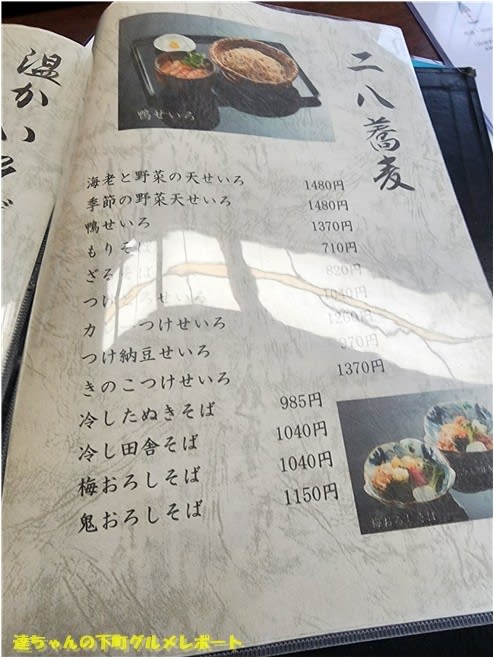 温かいそば
鴨せいろ
二八蕎麦
海老と野菜の天せいろ 1480円
季節の野菜天せいろ 1480円
鴨せいろ 1370円
もりそば 710円
ざるそば 820円
つけ ろせいろ 1040円
カ つけせいろ 1260円
つけ納豆せいろ 970円
きのこつけせいろ 1370円
冷したぬきそば 985円
冷し田舎そば 1040円
梅おろしそば 1040円
鬼おろしそば 1150円
梅おろしそば
達ちゃんの下町グルメレポート